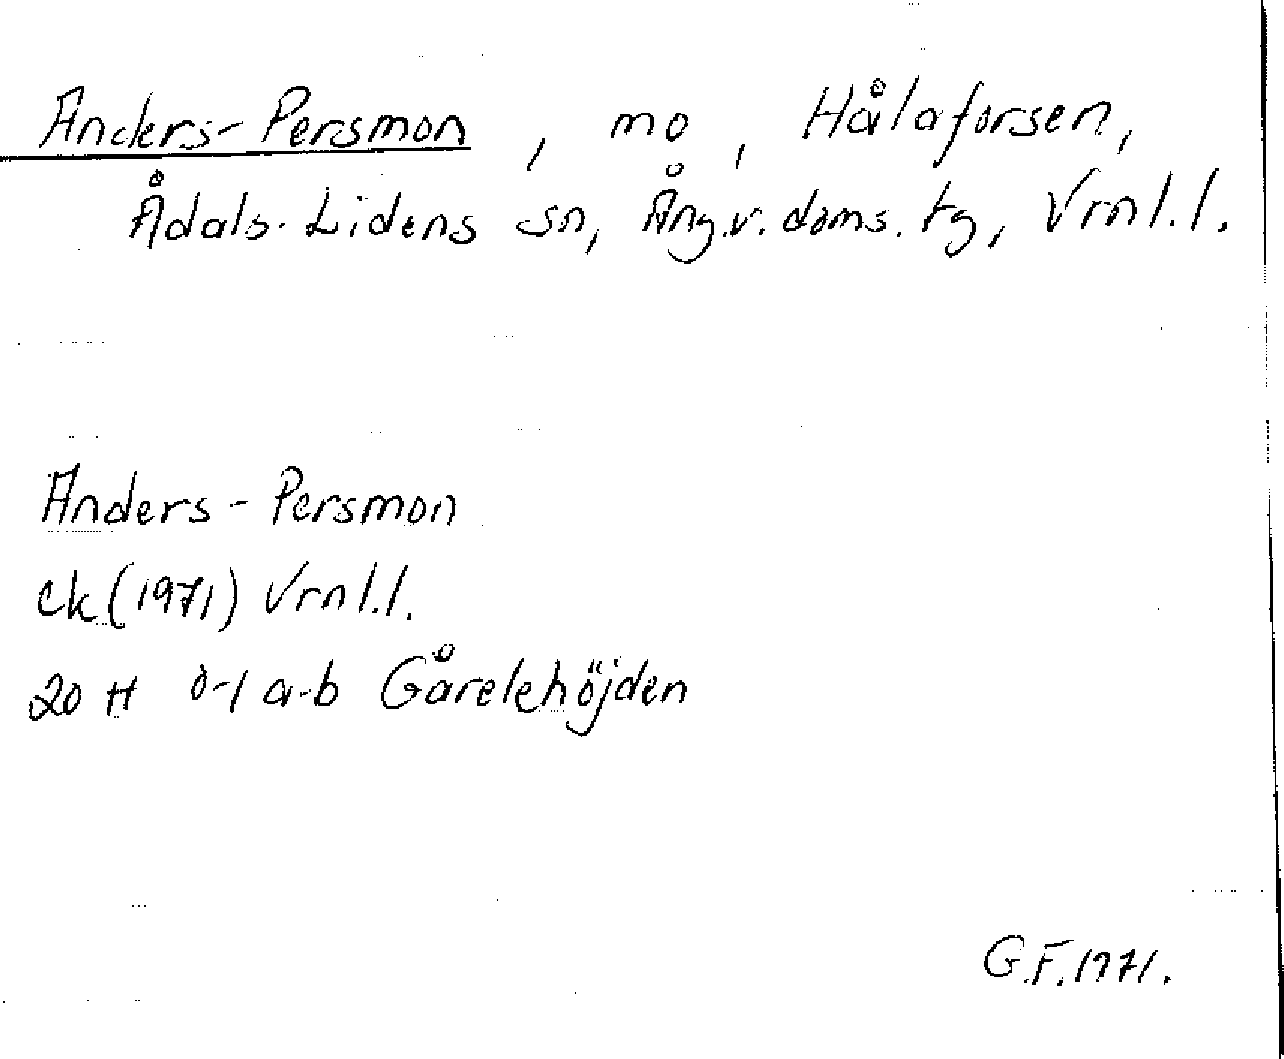 Anders-Persmon, mo, Hålaforsen,
Ådals-Lidens sn, Ång.v.doms.tg, Vrnl.l.
Anders-Persmon
ek(1971) Vrnl.l.
20 H 0-1 a-b Gårelehöjden
G.F.1971.